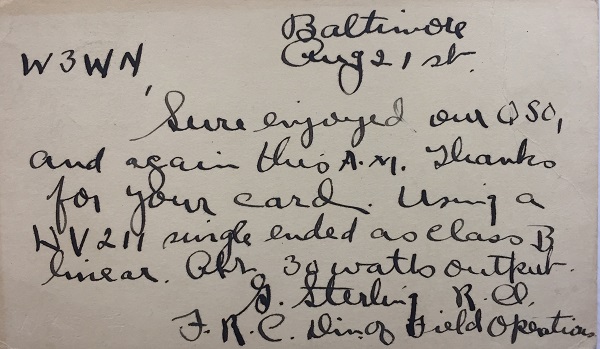 Baltimore
Aug 21 st.
W3WN,
Sure enjoyed our QSO,
and again this A.M. Thanks
for your card. Using a
HV211 single ended as class B
linear. Abt. 30 watts output.
G. Sterling R.I.
F.R.C. Div. of Field Operations